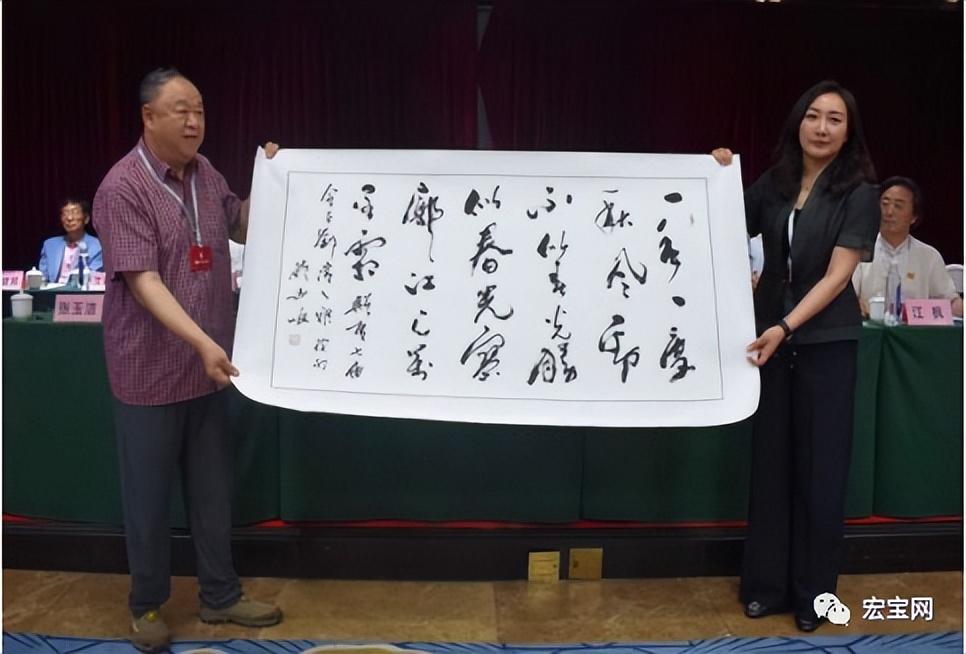 一年一度
秋风劲
不似春光胜
似春光寥
廓江天万
里霜
张玉洁
江枫
宏宝网